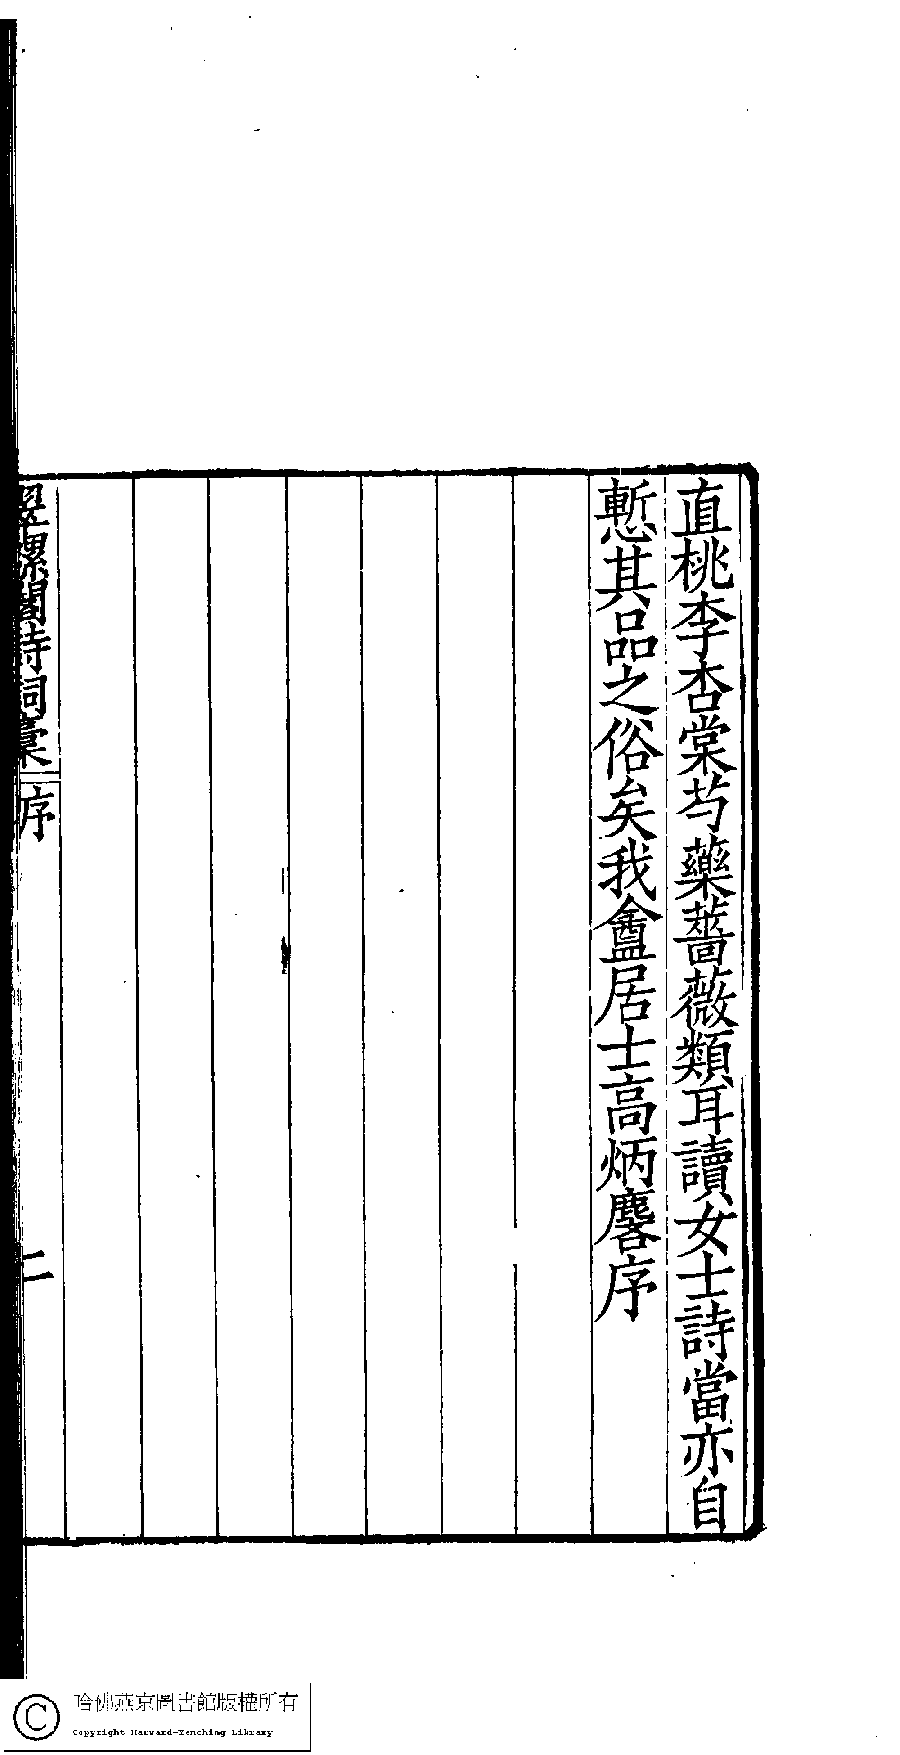 直桃李杏棠芍藥薔薇類耳讀女士詩當亦自
慙其品之俗矣我盦居士高炳麐序
翠螺閣詩詞稾 序 二
哈佛燕京圖書館版權所有
Copyright Harvard-Yenching Library